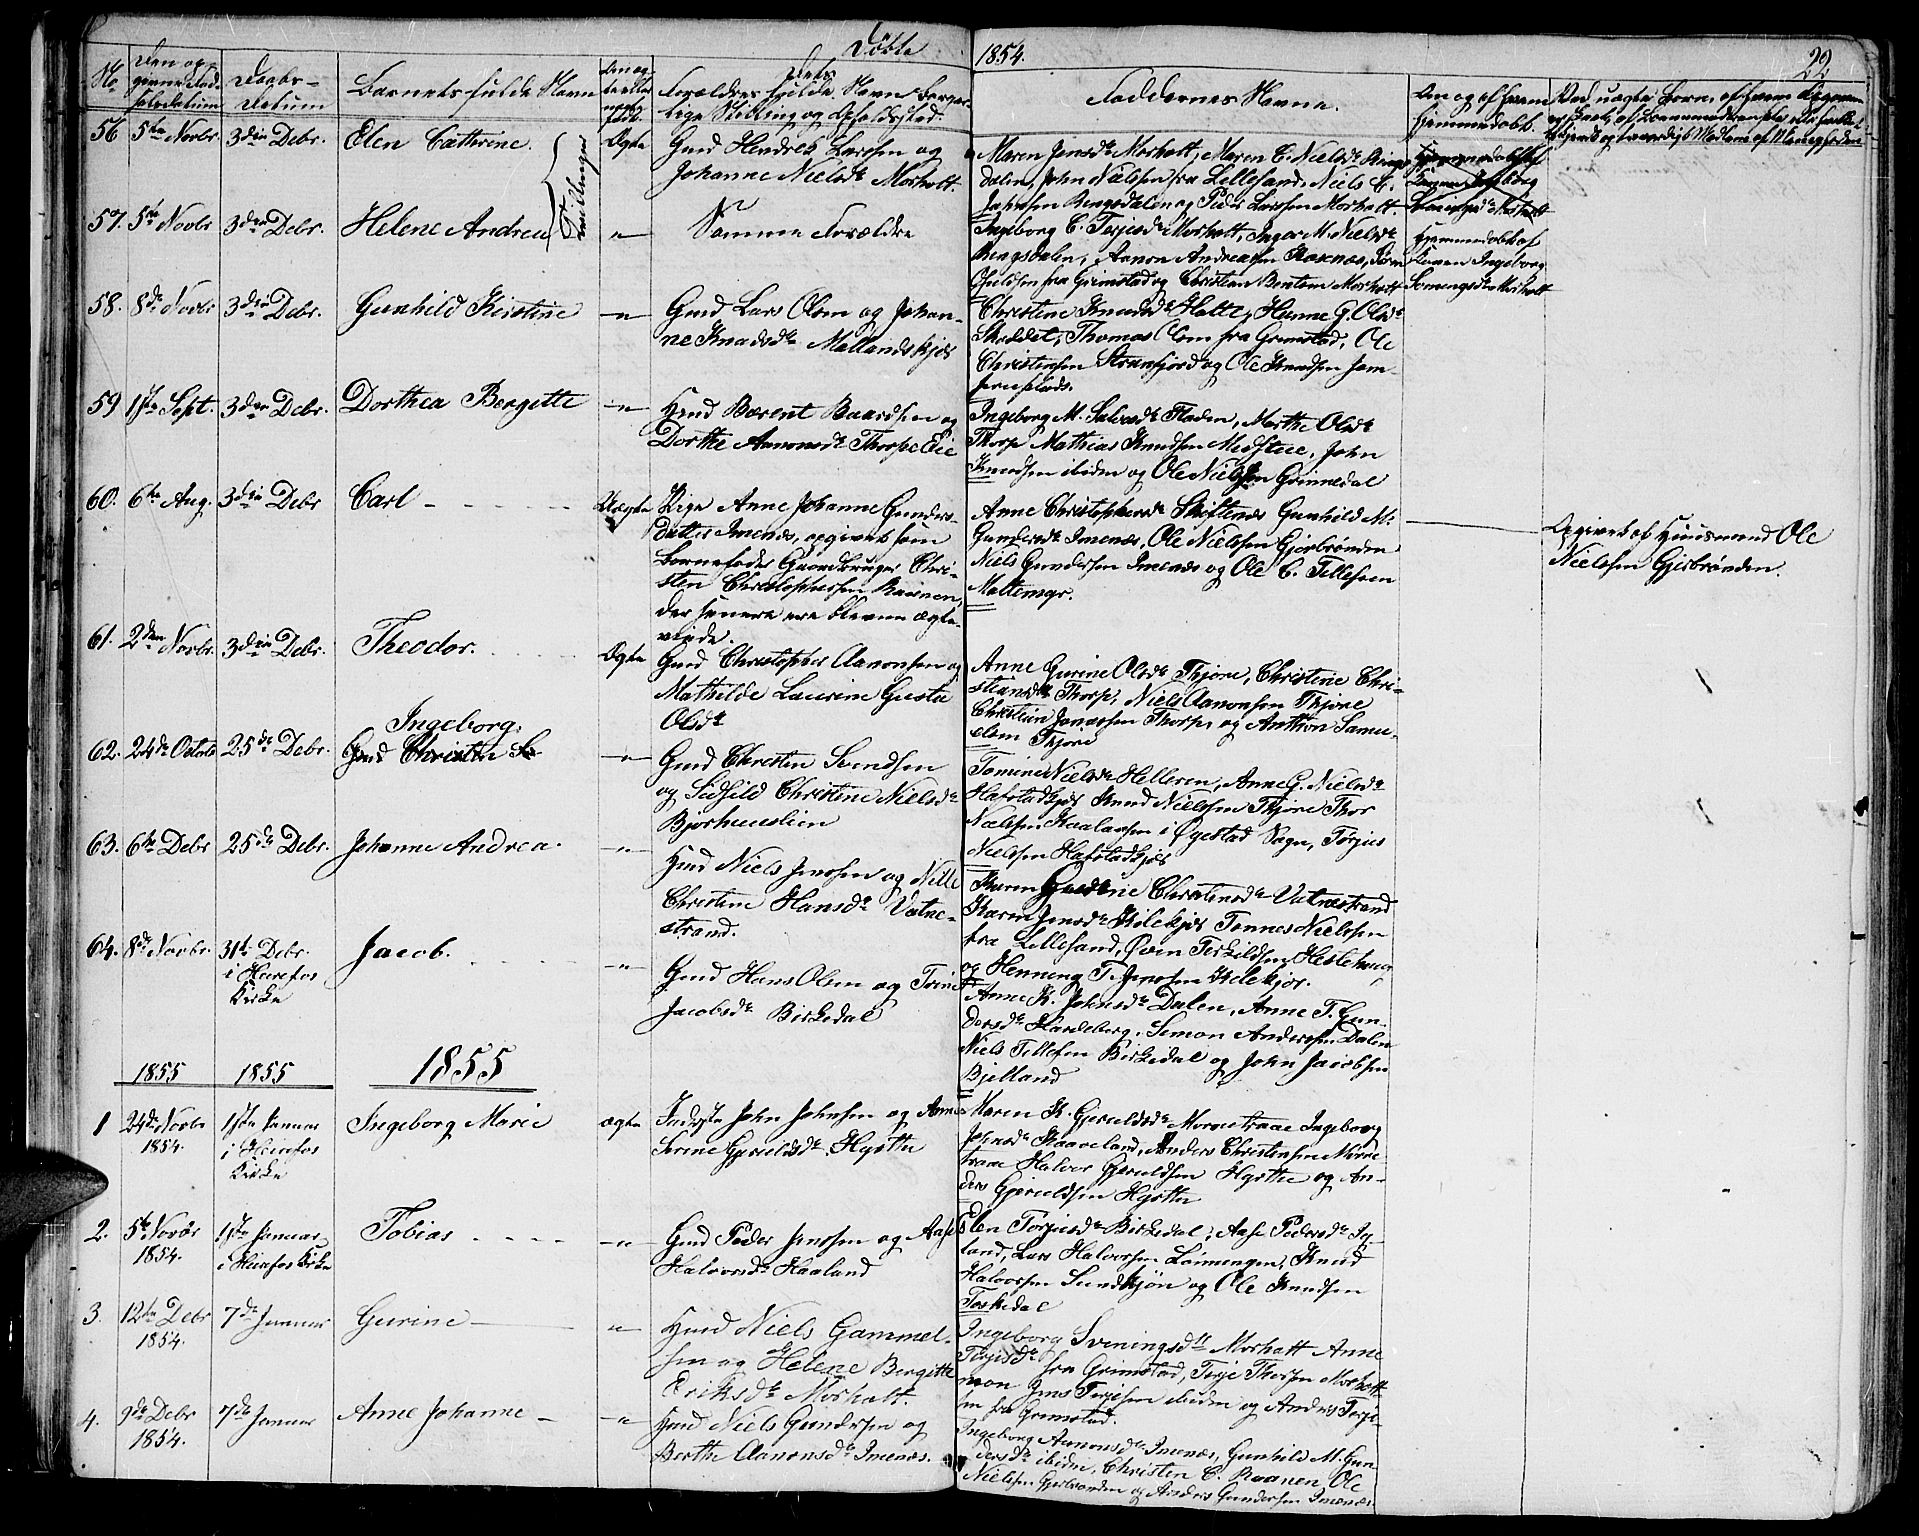 Døbte
1854.
22
No
Den opgivne Fødselsdatum
Daabs-Datum
Barnets fulde Navn
Om ægte eller uægte født.
Forældres fulde Navn, borgerlige Stilling og Opholdssted.
Faddernes Navne.
Om og af hvem hjemmedøbt.
56 5te Novbr. 3die Debr. Elen Cathrine.
Tvillinger
Ægte
Gmd Hendrik Larssen og
Johanne Nielsdr Morholt.
Maren Jensdr Morholt, Maren C. Nielsdr Rings-
dalen, John Nielsen fra Lillesand, Niels C.
Johnsen Ringsdalen og Peder Larssen Morholt.
57. 5te Novbr 3die Debr. Helene Andrea
"
Samme Forældre
Ingeborg C. Terjesdr Morholt, Inger M. Nielsdr
Ringsdalen, Aanon Andreassen
fra Grimstad og Christian Morholt
Hjemmedøbt af
Konen Ingeborg
Sveningsdr Morholt
58. 8de Novbr 3die Debr. Gunhild Kirstine
"
Gmd Lars Olsen og Johan-
ne Knudsdr Mallandskjos
Christine Knudsdr Holte, Hanne G. Olsdr
Thomas Olsen fra Grimstad, Ole
Christensen og Ole Knudsen
59 1ste Sept. 3die Debr. Dorthea Bergitte
"
Hmd Bærent Baardsen og
Dorthe Aanonsdr Thorpe Eie
Ingeborg M. Salvesdr Fladen, Marthe Olsdr
Thorp Mathias Knudsen Midstue, John
Knudsen ibiden og Ole Nielsen Grinnedal
60. 6te Aug. 3die Debr Carl
Uægte
Pige Anne Johanne Gunders-
datter Imenæs, opgivet som
Barnefader Gaardbruger Chri-
sten Christophersen Raanen,
der senere ere blevne ægte-
viede.
Anne Christophersdr Skiftenes Gunhild M.
Gundersdr Imenæs, Ole Nielsen Gjerbrønden
Niels Gundersen Imenæs og Ole C. Tellefsen
Opgivet af Huusmand Ole
Nielsen Gjerbrønden.
61. 2den Novbr. 3die Debr. Theodor.
Ægte
Gmd Christopher Aanonsen og
Mathilde Laurine Gusta
Olsdr
Anne Gurine Olsdr Thjøre, Christine Chri-
stiansdr Thorp, Niels Aanonsen Thjøre
Christian Jonassen Thorpe, og Anthon Samu-
elsen Thjøre
Ingeborg.
62. 24de Octobr 25de Debr. Gmd Christen S
"
Gmd Christen Svendsen
og Sidsild Christine Nielsdr
Bjorhuuslien
Tomine Nielsdr Helleren, Anne G. Nielsdr
Hafstadkjos Knud Nielsen Thjøre Thor
Nielsen Haalaasen i Øgestad Sogn, Torjus
Nielsen Hafstadkjos
63. 6te Debr 25de Debr. Johanne Andrea.
"
Hmd Niels Jensen og Nille
Christine Hansdr Vatne-
strand.
Karen Christensdr Vatnestrand
Karen Jensdr Kilekjos Tønnes Nielsen
fra Lillesand, Øven Terkildsen
og Henning T. Jensen Kilekjos.
64. 8de Novbr. 31te Debr.
i Hærefos
Kirke
Jacob.
"
Gmd Hans Olsen og Trine
Jacobsdr Birkedal
Anne K. Johnsdr Dalen, Anne T. Gun-
dersdr Hardeberg, Simon Anderssen Dalen
Niels Tellefsen Birkedal og John Jacobsen
Bjelland
1855 1855 1855
1 24de Novbr
1854.
1ste Januar
i Hærefos
Kirke
Ingeborg Marie
ægte
Inderste John Johnsen og Anne
Serine Gjeruldsdr Hysthe
Maren K. Gjeruldsdr Morvetraae Ingeborg
Johnsdr Kaaveland, Anders Christensen Morve-
traae Halvor Gjeruldsen Hysthe og An-
ders Gjeruldsen Hysthe
2. 5te Novbr
1854.
1ste Januar
i Hærefos Kirke
Tobias
"
Gmd Peder Jensen og Aase
Halvorsdr Haaland
Elen Torjusdr Birkedal, Aase Pedersdr Ty-
land, Lars Halvorsen Lønningen, Knud
Halvorsen Sundkjøn og Ole Knudsen
Toskedal
3. 12te Debr
1854.
7de Januar Gurine
"
Hmd Niels Gammel-
sen og Helene Bergitte
Eriksdr Morholt.
Ingeborg Sveningsdr Morholt Anne
Terjesdr fra Grimstad, Terje Thorsen Morholt-
moen Jens Terjesen ibiden og Anders Terje-
sen fra Grimstad.
4. 9de Debr
1854.
7de Januar Anne Johanne
"
Hmd Niels Gundersen og
Berthe Aanonsdr Imenæs.
Ingeborg Aanonsdr Imenæs, Gunhild M. Gun-
dersdr ibiden, Christen C. Raanen Ole
Nielsen Gjerbrønden og Anders Gundersen Imenæs